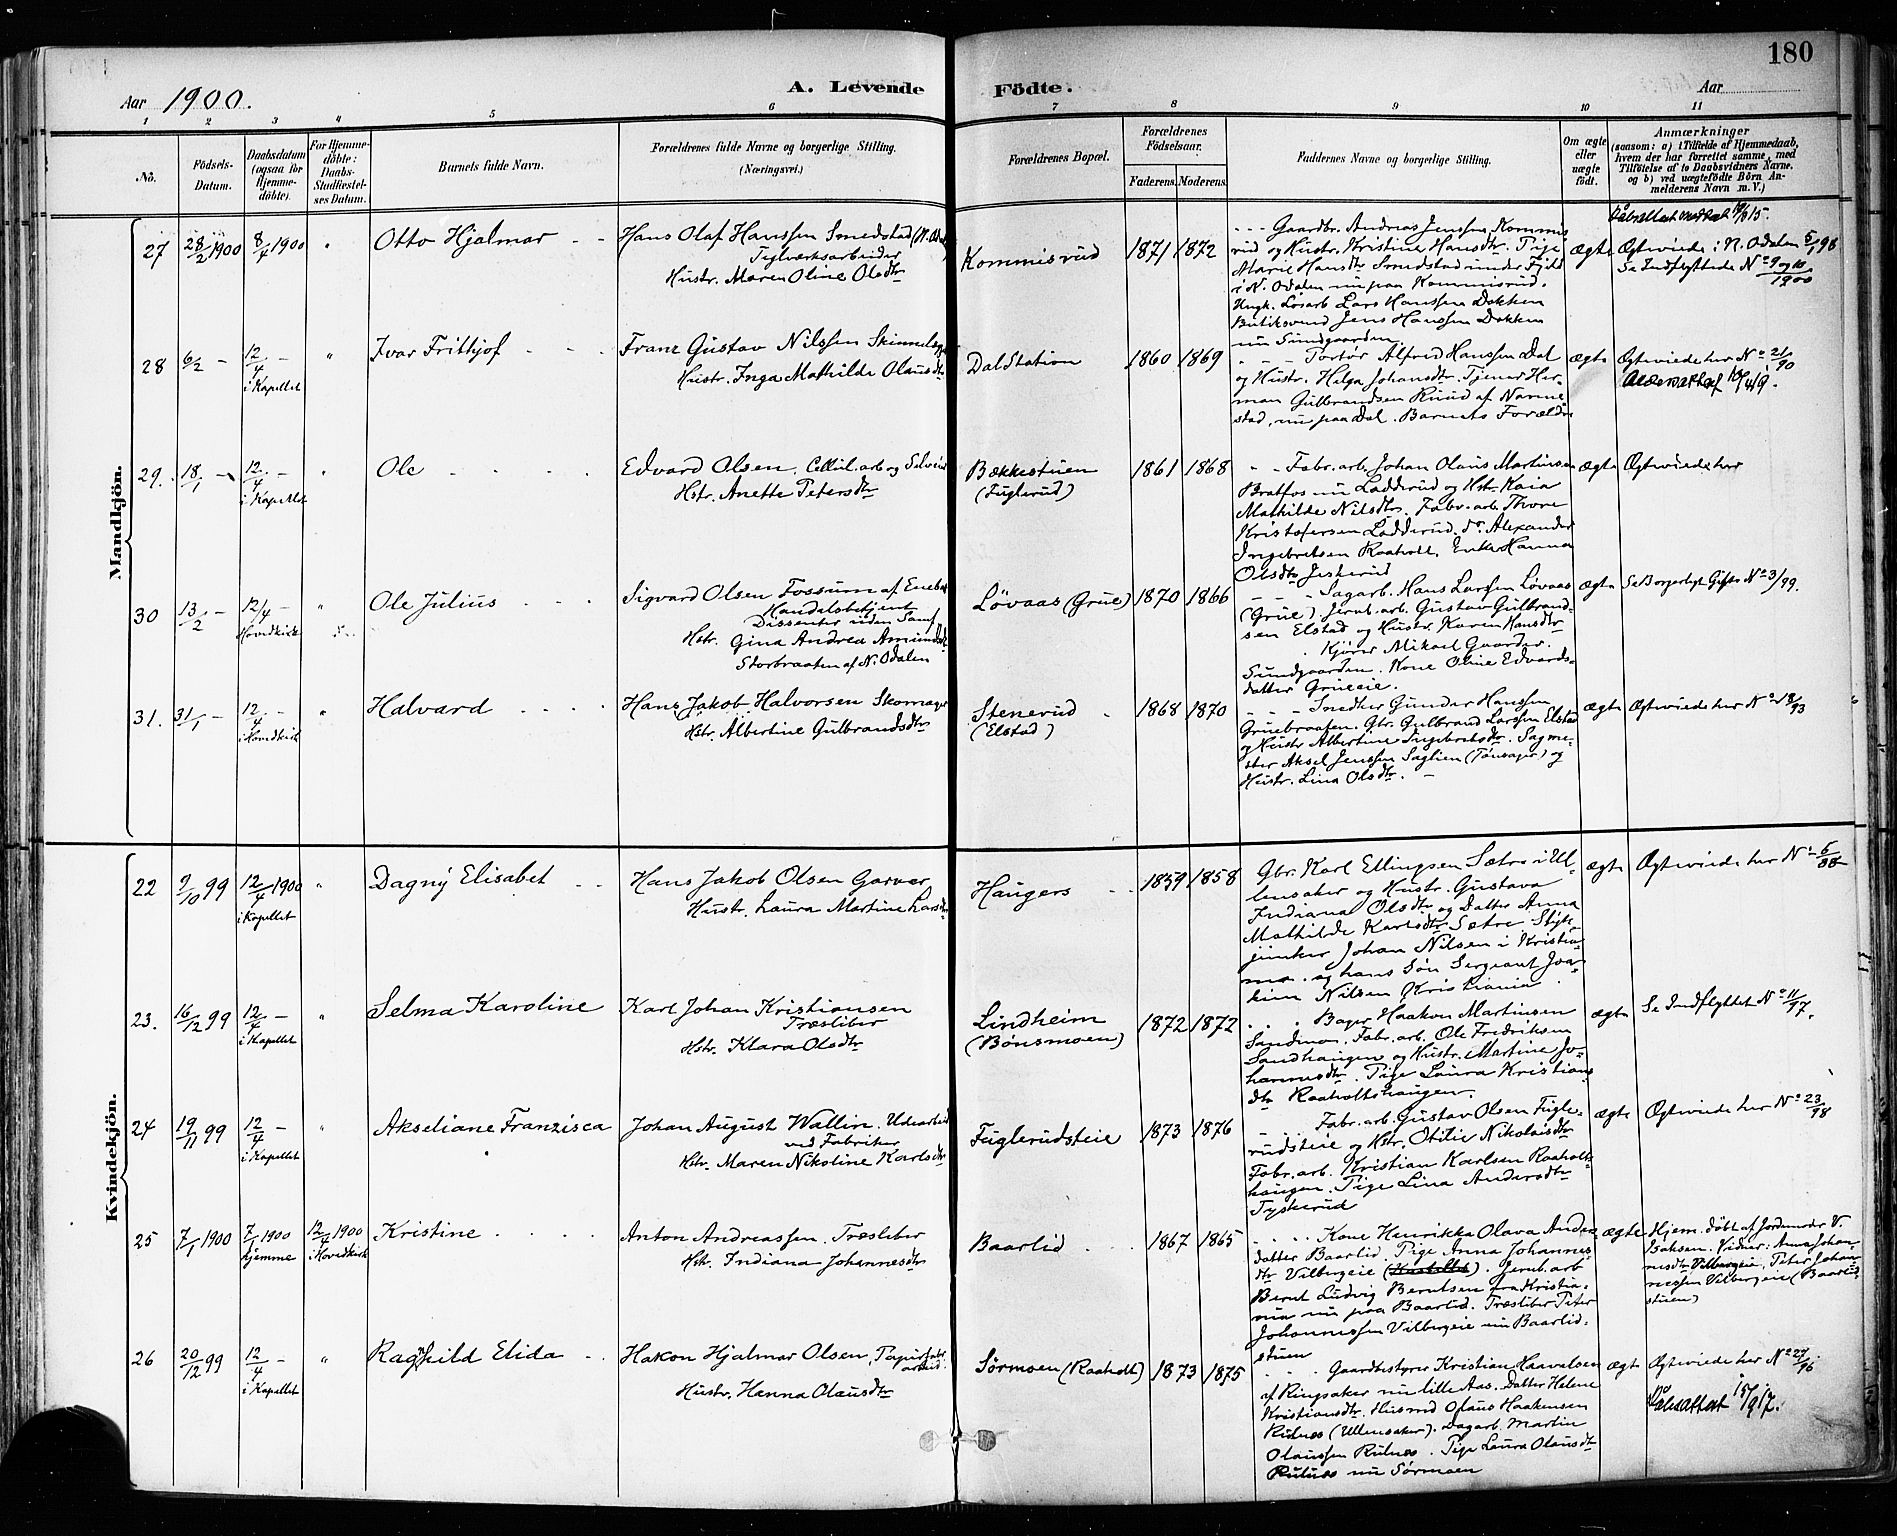 180
Aar 1900.
A. Levende Födte.
Aar
1 2 3 4 5 6 7 8 9 10 11
No.
Födsels-Datum.
Daabsdatum (ogsaa for Hjemme-döbte).
For Hjemme-döbte: Daabs-Stadfæstel-ses Datum.
Barnets fulde Navn.
Forældrenes fulde Navne og borgerlige Stilling. (Næringsvei.)
Forældrenes Bopæl.
Forældrenes Födselsaar.
Faderens. Moderens.
Faddernes Navne og borgerlige Stilling.
Om ægte eller uægte født.
Anmærkninger
(saasom: a) i Tilfælde af Hjemmedaab, hvem der har forrettet samme, med Tilföielse af to Daabsvidners Navne. og b) ved uægtefödte Börn An-melderens Navn m. V.)
Mandkjön.
27 28/2 1900 8/4 1900 " Otto Hjalmar
Hans Olaf Hanssen Smedstad (N. Odal)
Teglværksarbeider
Hustr. Maren Oline Olsdtr
Kommisrud 1871 1872
Gaardbr. Andreas Jenssen Kommis
rud og Hustr. Kristine Hansdtr. Pige
Marie Hansdtr Smedstad under Fjeld
i N. Odalen nu paa Kommisrud.
Ungk. Løsarb Lars Hanssen Dokken
Butiksvend Jens Hanssen Dokken
nu Sundgaarden.
ægte
Ægtviede i N. Odalen 5/1 98
Se Indflyttede No 9 og 10/1900
28 6/2 - 12/4 - i Kapellet " Ivar Frithjof
Franz Gustav Nilssen
Hustr. Inga Mathilde Olausdtr
Dal Station 1860 1869
Alfred Hanssen Dal
og Hustr. Helga Johansdtr. Tjener Her-
man Gulbrandsen Ruud af Nanne
stad, nu paa Dal. Barnets Forældre
ægte
Ægtviede her No 21/90
29. 18/1 - 12/4 - i Kapellet " Ole
Edvard Olsen, Cellul. arb og
Hstr. Anette Petersdtr
Bækkestuen
(Fuglerud)
1861 1868
Fabr. arb. Johan Olaus Martinsen
Bratfos nu Ladderud og Hstr. Kaia
Mathilde Nilsdtr. Fabr. arb. Thore
Kristofersen Ladderud. do Alexander
Ingebretsen Raaholt. Enke Hanna
Olsdtr Jeskerud
ægte Ægtviede her
30 13/2 - 12/4 - Hovedkirk " Ole Julius
Sigvard Olsen Fossum af Enebak
Handelsbetjent
Dissenter uden Samf.
Hstr. Gina Andrea Amundsdtr
Storbraaten af N. Odalen
Løvaas (Grue) 1870 1866
Sagarb. Hans Larssen Løvaas
(Grue) Jernb. arb. Gustav Gulbrand-
sen Elstad og Hustr. Karen Hansdtr
Kjører Mikael Gaarder.
Sundgaarden. Kone Oline Edvards-
datter Grueeie.
ægte Se Borgerligt Gifte No 3/99.
31. 31/1 - 12/4 - i Hovedkirk " Halvard
Hans Jakob Halvorsen Skomager
Hstr. Albertine Gulbrandsdtr
Stenerud
(Elstad)
1868 1870
Snedker Gunder Hanssen
Gruebraaten. Gbr. Gulbrand Larssen Elstad
og Hustr Albertine Ingebretsdtr. Sagme-
ster Aksel Jenssen Saglien (Tønsager) og
Hustr. Lina Olsdtr.
ægte Ægtviede her No 18/93
Kvindekjön.
22 9/10 99 12/4 1900 i Kapellet " Dagny Elisabet
Hans Jakob Olsen Garver
Hustr. Laura Martine Larsdtr
Haugers 1859 1858
Gbr. Karl Ellingsen Sætre i Ul-
lensaker og Hustr. Gustava
Indiana Olsdtr og Datter Anna
Mathilde Karlsdtr Sætre. Styk-
junker Johan Nilsen i Kristia
nia. og hans Søn Sergeant Joa-
kim Nilsen Kristiania.
ægte Ægtviede her No 6/88
23. 16/12 99 12/4 - i Kapellet " Selma Karoline
Karl Johan Kristiansen
Træsliber
Hstr. Klara Olsdtr
Lindheim
(Bønsmoen)
1872 1872
Bager Haakon Martinsen
Sandmo. Fabr. arb. Ole Fredriksen
Sandhaugen og Hustr. Martine Jo-
hannesdtr. Pige Laura Kristians
dtr Raaholtshaugen.
ægte Se Indflyttet No 11/97.
24 19/11 99 12/4 - i Kapellet " Akseliane Franzisca
Johan August Wallin. Udearbeid
ved Fabriker
Hstr. Maren Nikoline Karlsdtr
Fuglerudseie 1873 1876
Fabr. arb. Gustav Olsen Fugle-
rudseie og Hstr. Otilie Nikolaisdtr
Fabr. arb. Kristian Karlsen Raaholt-
haugen. Pige Lina Andersdtr
Tyskerud
ægte Ægtviede her No 23/98
25 7/1 1900 7/1 1900 hjemme 12/4 1900 i Hovedkirk Kristine
Anton Andreassen. Træsliber
Hstr. Indiana Johannesdtr
Baarlid 1867 1865
Kone Henrikka Olava Andrea
datter Baarlid. Pige Anna Johannes
dtr Vilbergeie. Jernb. arb
Bernt Ludvig Berntsen fra Kristia-
nia nu paa Baarlid. Træsliber Peter
Johannessen Vilbergeie nu Baarlid-
stuen
ægte
Hjem. døbt af Jordemoder V.
Baksen. Vidner: Anna Johan-
nesdtr Vilbergeie, Peter Johan-
nessen Vilbergeie (Baarlid
stuen)
26 20/12 99 12/4 - i Kapellet " Ragnhild Elida
Hakon Hjalmar Olsen, Papirfabr. arbeid.
Hustr. Hanna Olausdtr
Sørmoen (Raaholt) 1873 1875
Gaardbestyrer Kristian Haavelsen
af Ringsaker nu lille Aas. Datter Helene
Kristiansdtr. Husmd Olaus Haakensen
Rulnæs (Ullensaker). Dagarb. Martin
Olaussen Rulnes. Pige Laura Olausdtr
Rulnæs nu Sørmoen
ægte Ægtviede her No 27/96
Dåbsattest 15/9 17.